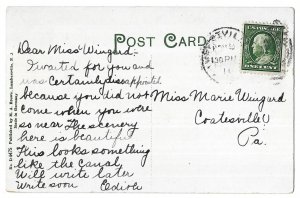 POST CARD
Dear Miss Wingard:-
I waited for you and
was certainly disappointed
because you did not
come when you were
so near The scenery
here is beautiful
This looks something
like the canal,
Will write later
Write soon
Miss Marie Wingard
Coatesville
Pa.